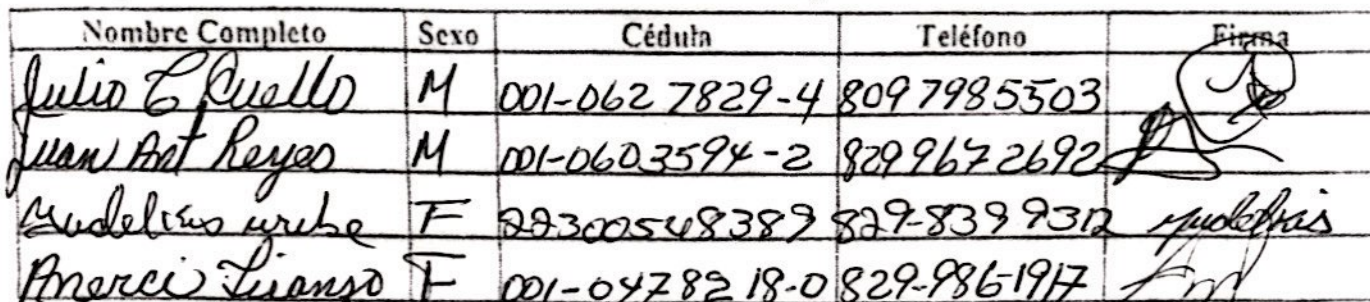 Nombre Completo Sexo Cédula Teléfono Firma
Julio C Cuello M 001-062 7829-4 809 798 5503
Juan Ant Reyes M 001-0603594-2 829 967 2692
Yudelkis uribe F 22300548389 829-839 9312 yudelkis
F 001-04782 18-0 829-986-1917